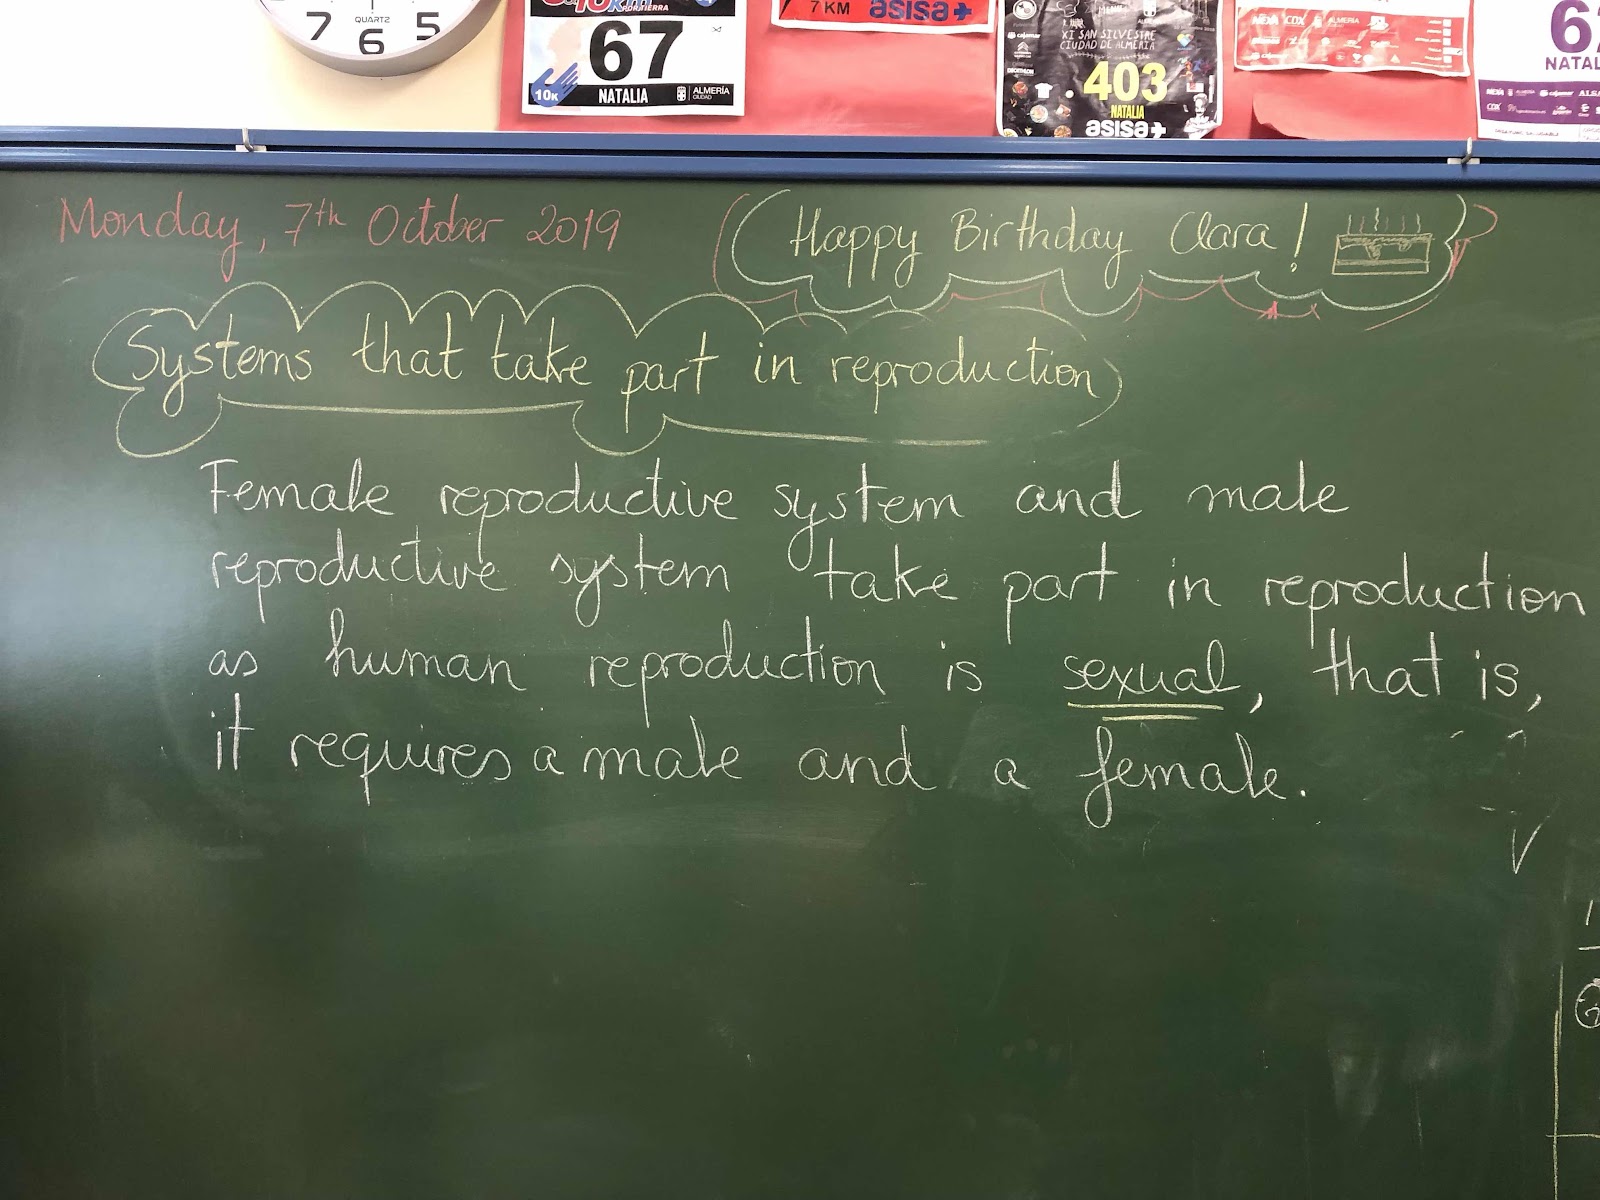 7 6 5
QUARTZ
10km
POR TIERRA
67
10K NATALIA ALMERÍA
CIUDAD
7 KM asisa
XI SAN SILVESTRE
CIUDAD DE ALMERÍA
cajamar
DECATHLON
403
NATALIA
asisa
ALMERÍA
NATAL
cajamar
Monday, 7th October 2019
Happy Birthday Clara!
Systems that take part in reproduction
Female reproductive system and male
reproductive system take part in reproduction
as human reproduction is sexual, that is,
it requires a male and a female.